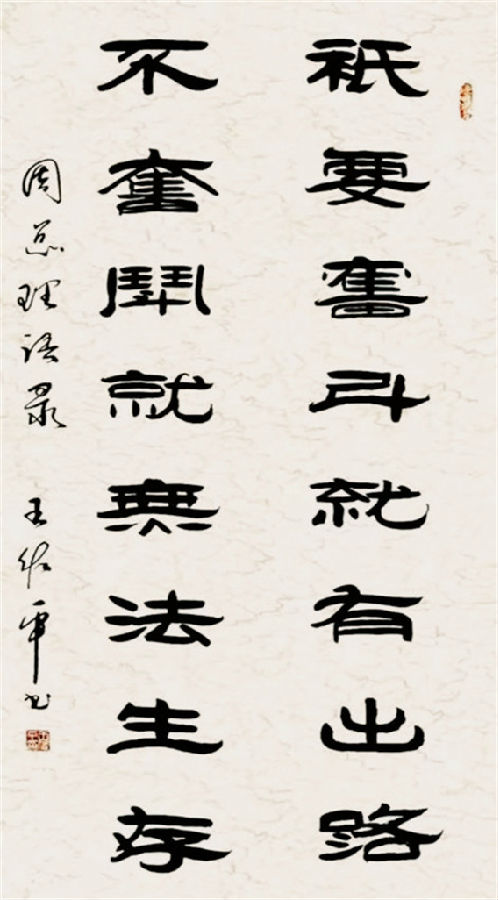 祇要奮斗就有出路
不奮鬪就無法生存
周总理语录 王佐军书